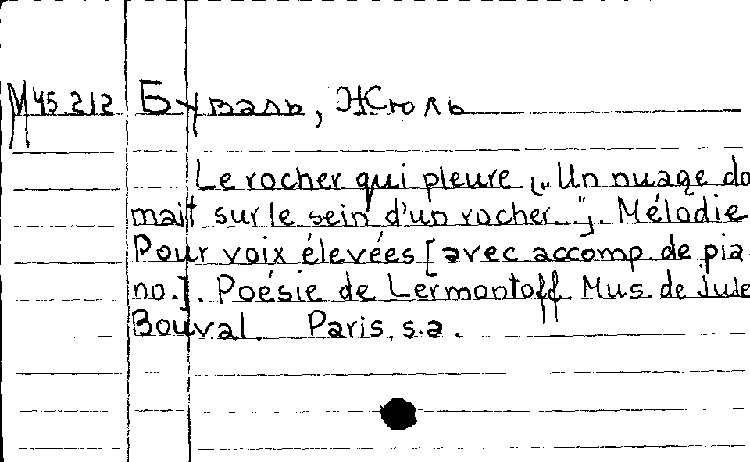 М 45 212 Буваль, Жюль
Le rocher qui pleure („Un nuage do
mait sur le sein d'un rocher..."). Mélodie
Pour voix élevées [avec accomp. de pia
no.]. Poésie de Lermontoff. Mus. de Jule
Bouval. Paris, s.a.